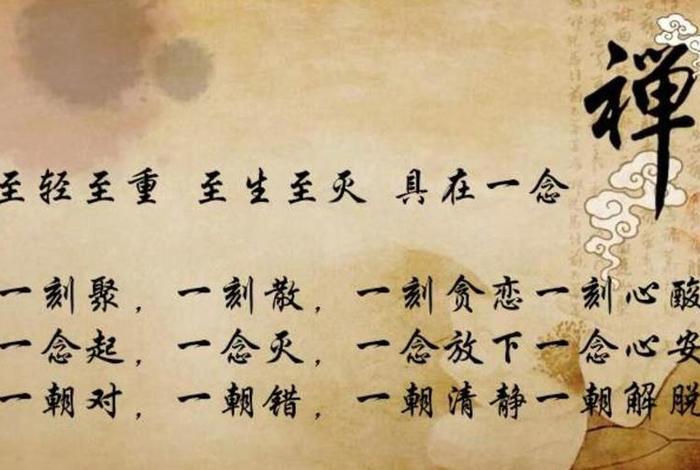 禅
至轻至重 至生至灭 具在一念
一刻聚，一刻散，一刻贪恋一刻心酸
一念起，一念灭，一念放下一念心安
一朝对，一朝错，一朝清静一朝解脱